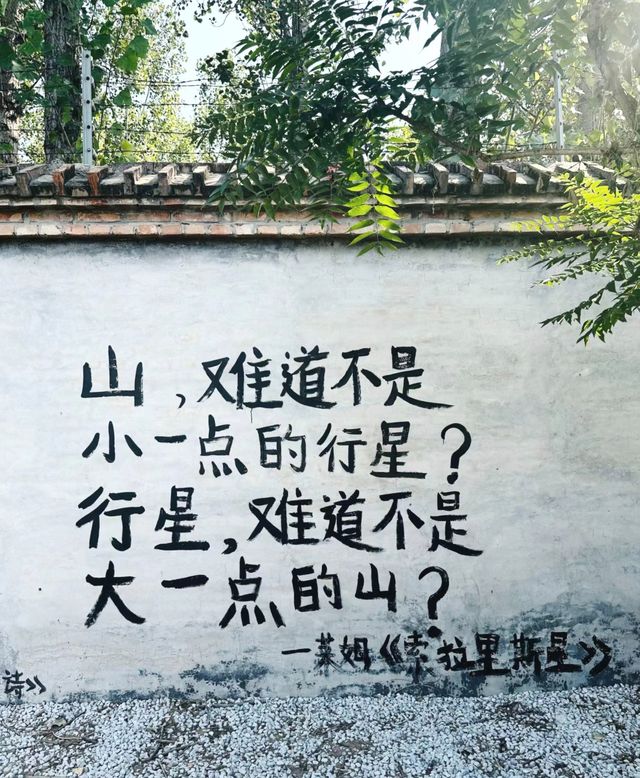 山，难道不是
小一点的行星？
行星，难道不是
大一点的山？
一莱姆《索拉里斯星》
诗》